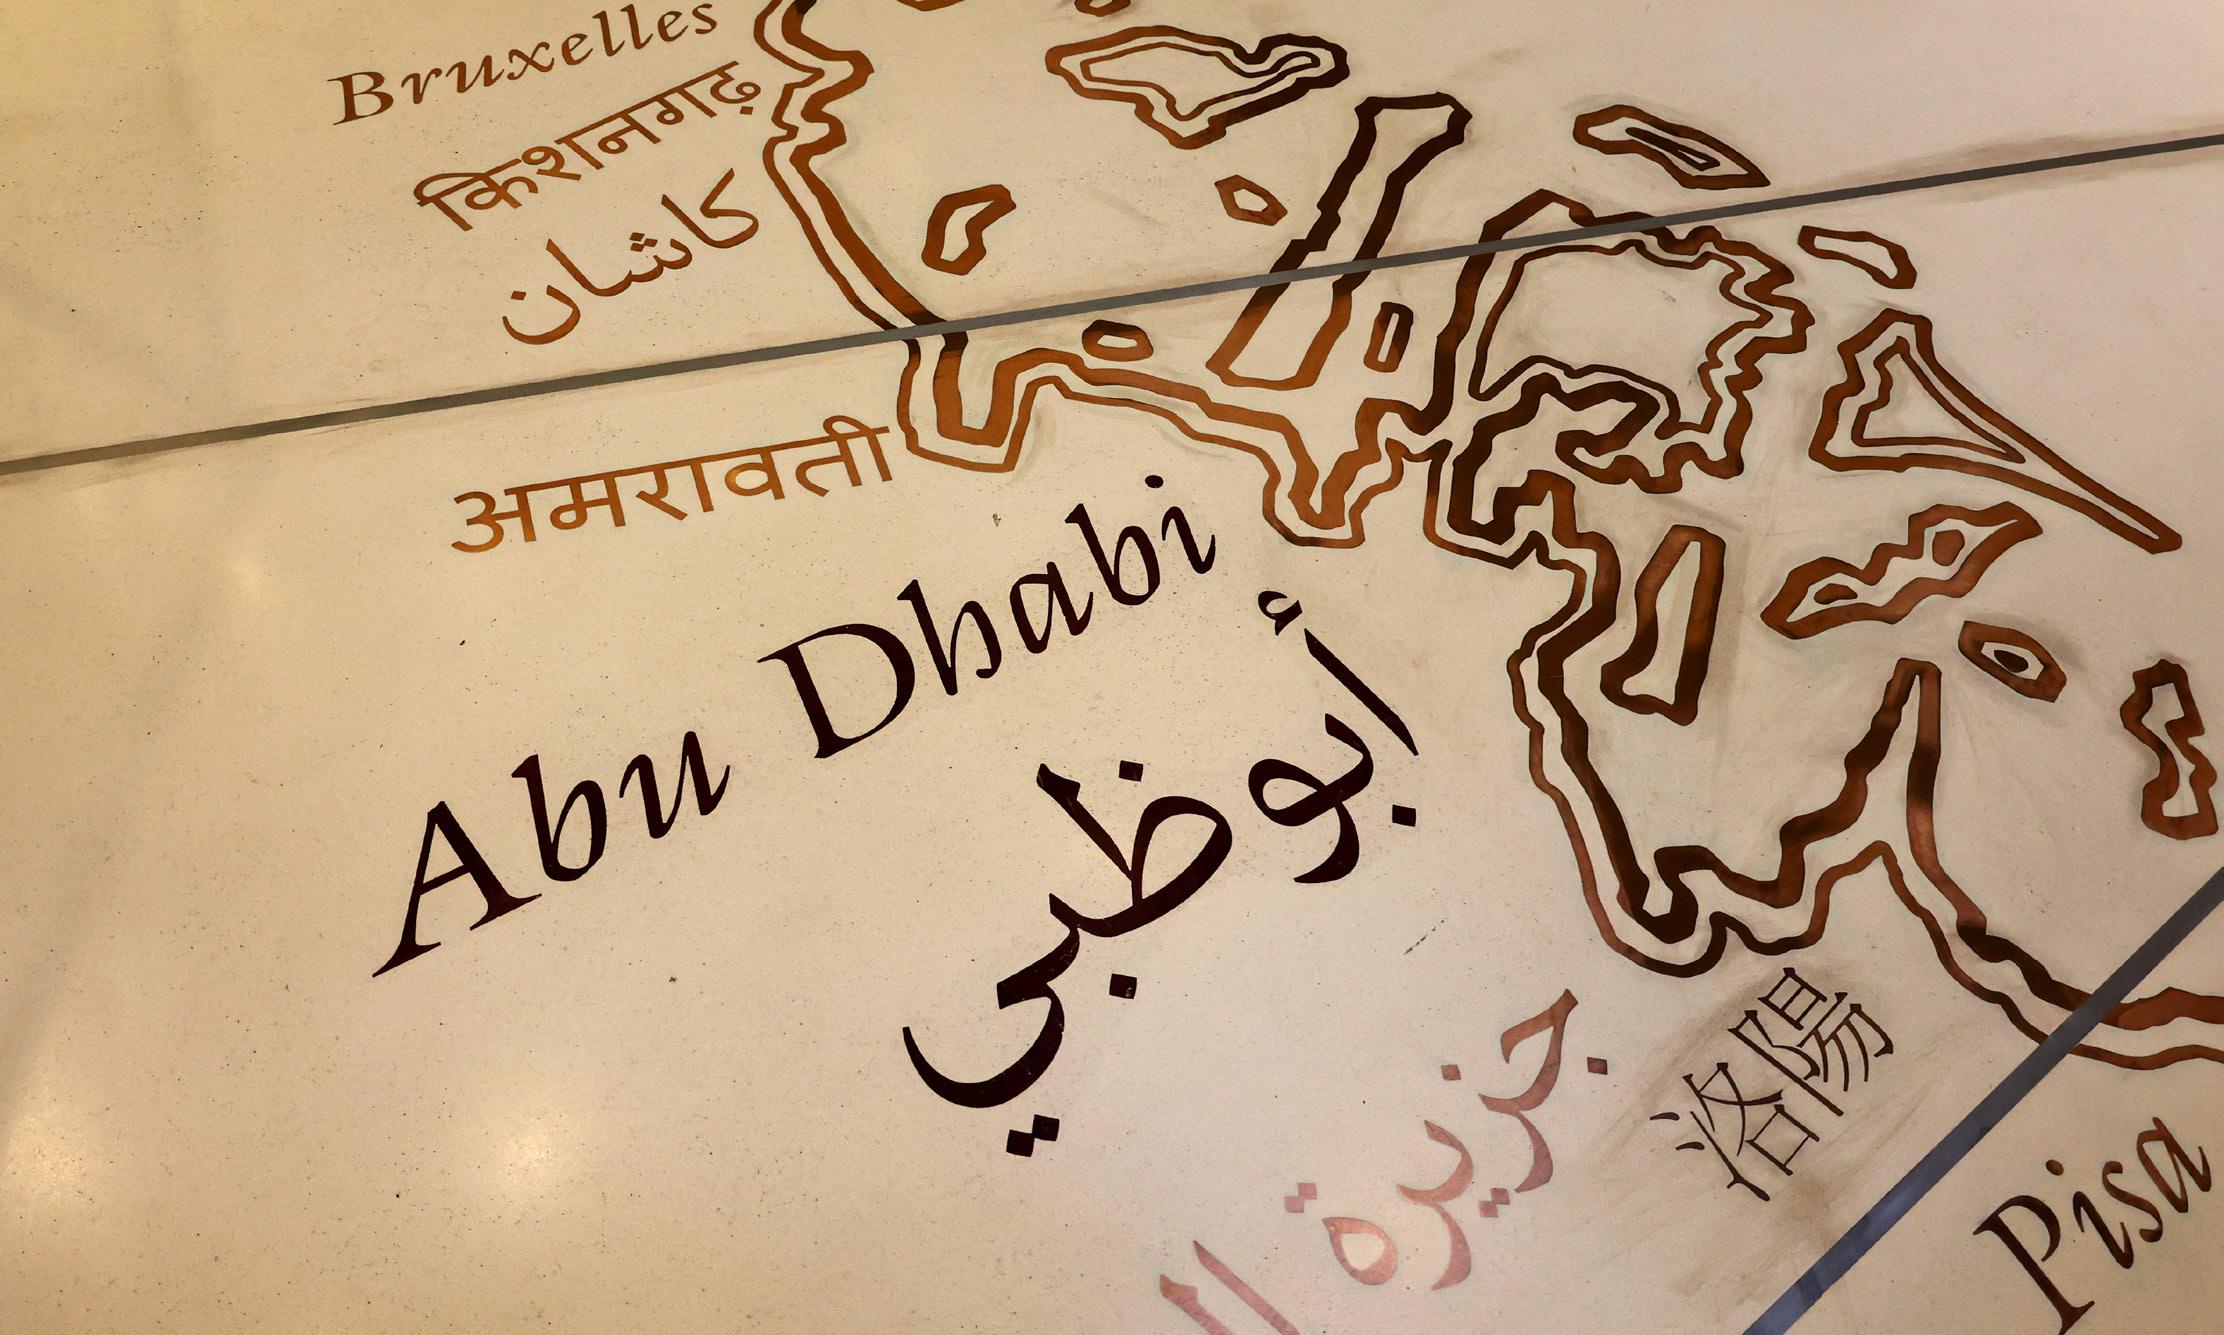 Bruxelles
किशनगढ़
كاشان
अमरावती
Abu Dhabi
أبوظبي
جزيرة
洛陽
Pisa